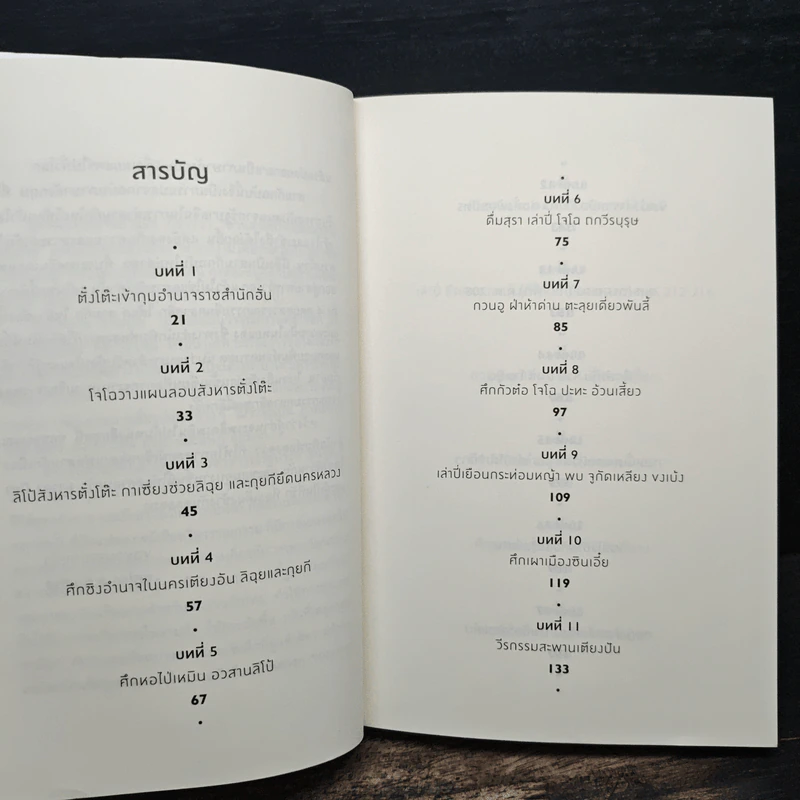 สารบัญ
•
บทที่ 1
ตั๋งโต๊ะเข้ากุมอำนาจราชสำนักฮั่น
21
•
บทที่ 2
โจโฉวางแผนลอบสังหารตั๋งโต๊ะ
33
•
บทที่ 3
ลิโป้สังหารตั๋งโต๊ะ กาเซี่ยงช่วยลิฉุย และกุยกียึดนครหลวง
45
•
บทที่ 4
ศึกชิงอำนาจในนครเตียงอัน ลิฉุยและกุยกี
57
•
บทที่ 5
ศึกหอไป๋เหมิน อวสานลิโป้
67
•
•
บทที่ 6
ดื่มสุรา เล่าปี่ โจโฉ ถกวีรบุรุษ
75
•
บทที่ 7
กวนอู ฝ่าห้าด่าน ตะลุยเดี่ยวพันลี้
85
•
บทที่ 8
ศึกกัวต๋อ โจโฉ ปะทะ อ้วนเสี้ยว
97
•
บทที่ 9
เล่าปี่เยือนกระท่อมหญ้า พบ จูกัดเหลียง ขงเบ้ง
109
•
บทที่ 10
ศึกเผาเมืองซินเอี๋ย
119
•
บทที่ 11
วีรกรรมสะพานเตียงปัน
133
•